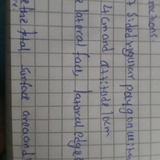 7 sided regular polygon with
4cm and altitude 8cm
lateral face, lateral edge
the total surface area and